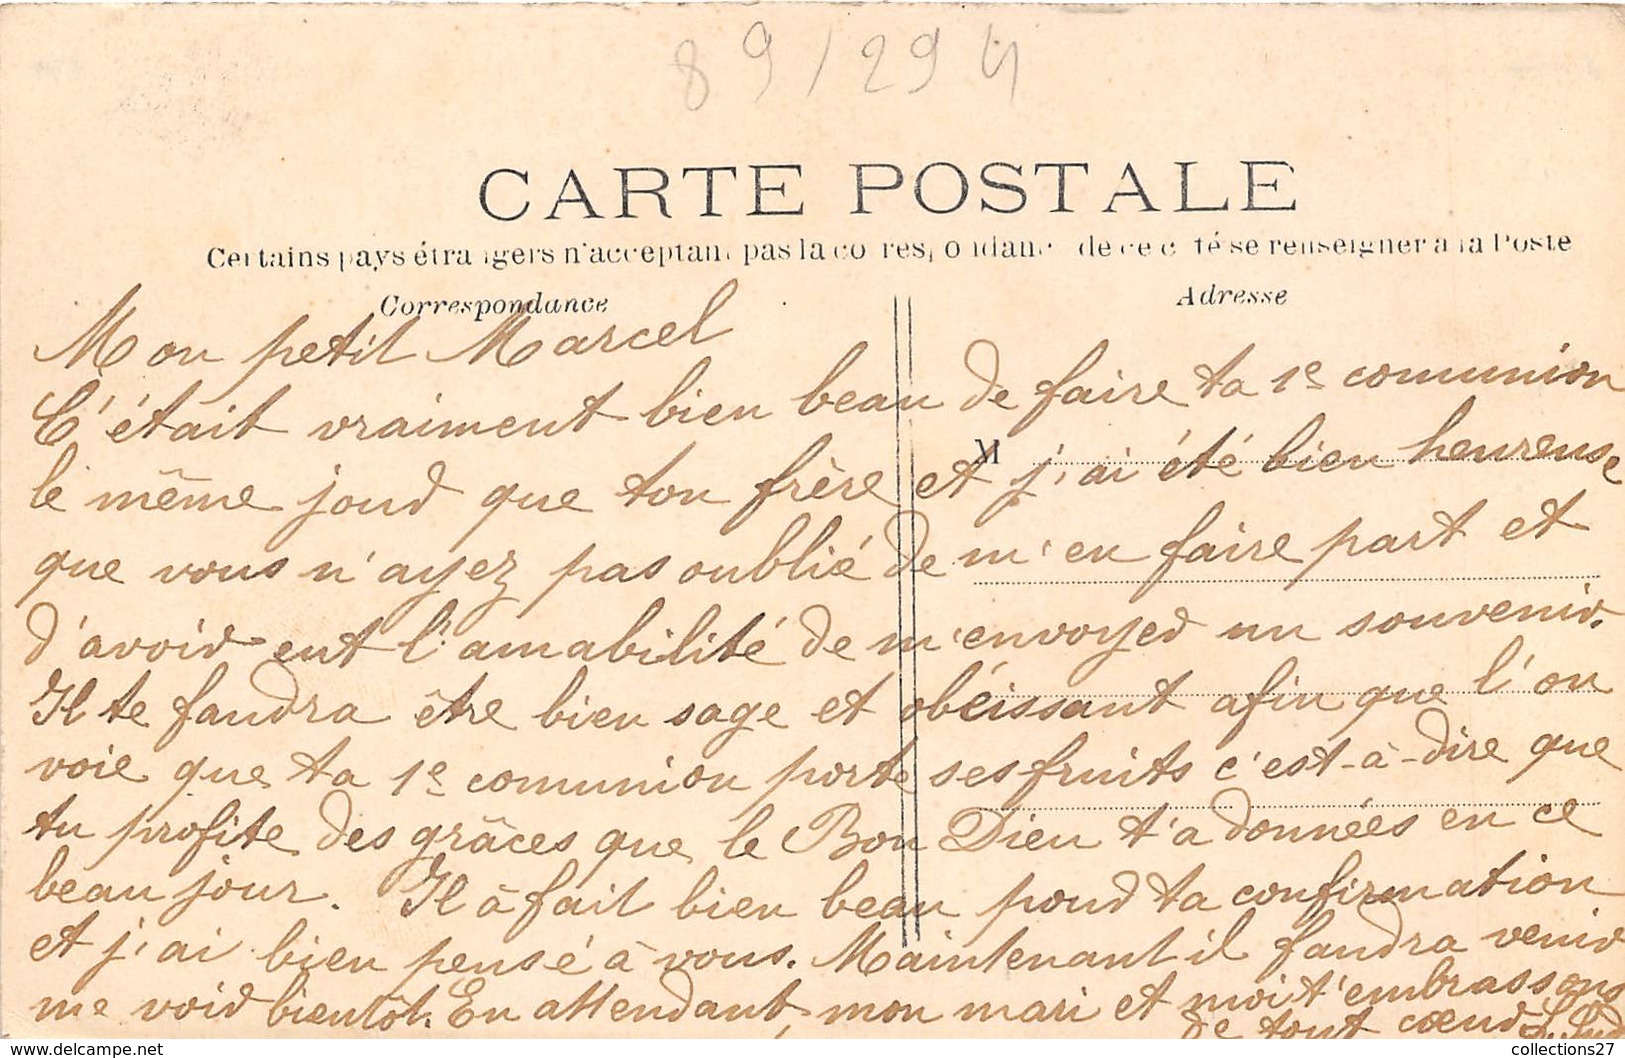 89/294
CARTE POSTALE
Certains pays étrangers n'acceptant pas la correspondance de ce côté se renseigner à la Poste
Correspondance
Adresse
M
Mon petit Marcel
C'était vraiment bien beau de faire ta 1e communion
le même jour que ton frère et j'ai été bien heureuse
que vous n'ayez pas oublié de m'en faire part et
d'avoir eut l'amabilité de m'envoyer un souvenir.
Il te faudra être bien sage et obéissant afin que l'on
voie que ta 1e communion porte ses fruits c'est-à-dire que
tu profite des grâces que le Bon Dieu t'a données en ce
beau jour. Il à fait bien beau pour ta confirmation
et j'ai bien pensé à vous. Maintenant il faudra venir
me voir bientôt. En attendant, mon mari et moi t'embrassons
de tout cœur L.
collections27